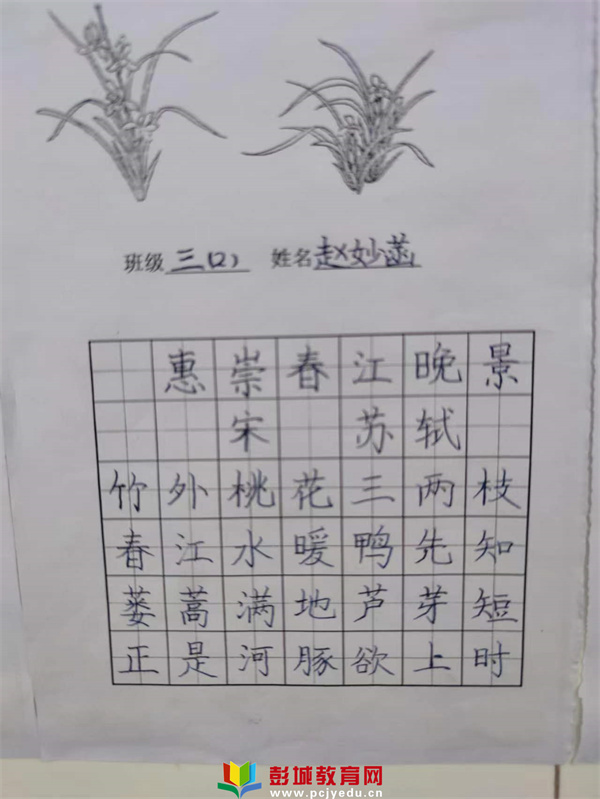 班级 三(2) 姓名 赵妙菡
惠崇春江晚景
宋 苏轼
竹外桃花三两枝
春江水暖鸭先知
蒌蒿满地芦芽短
正是河豚欲上时
彭城教育网
www.pcjyedu.cn